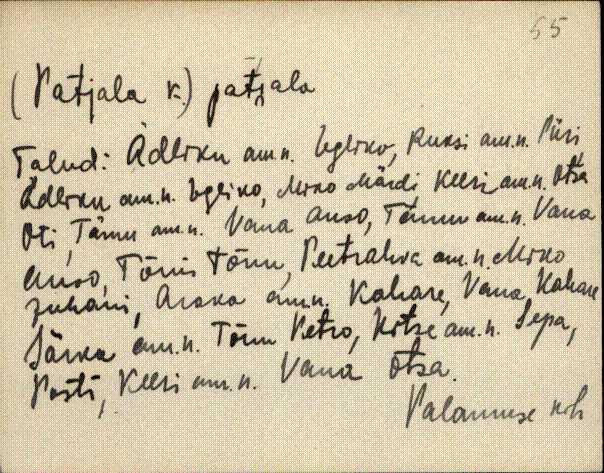 55
(Patjala k.) patjala
Talud: Ädliku am.n. Igliko, Kuksi am.n. Piiri
Ädliku am.n. Igliko, Miko Märdi Keesi am.n. Otsa
Oti, Tämu am.n. Vana Anso, Tõnnu am.n. Vana
Anso, Tõnis Tõnu, Peetrahva am.n. Miko
Juhani, Araka am.n. Kahare, Vana Kahare
Särka am.n. Tõnu Petro, Kitse am.n. Sepa,
Posti, Keesi am.n. Vana Otsa.
Palamuse khk